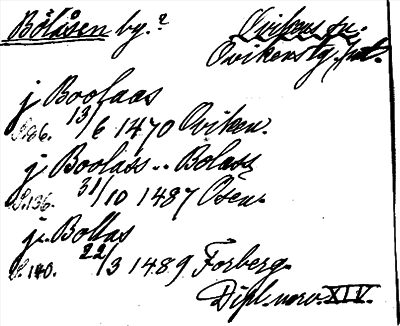 Bölåsen by.?
Ovikens sn.
Ovikens tg. Jmtl.
j Boolaas
S. 86. 13/6 1470 Oviken.
j Boolass .. Bolass
S. 136. 31/10 1487 Osen.
j. Bollas
S. 140. 22/3 1489 Forberg.
Dipl. norv XIV.